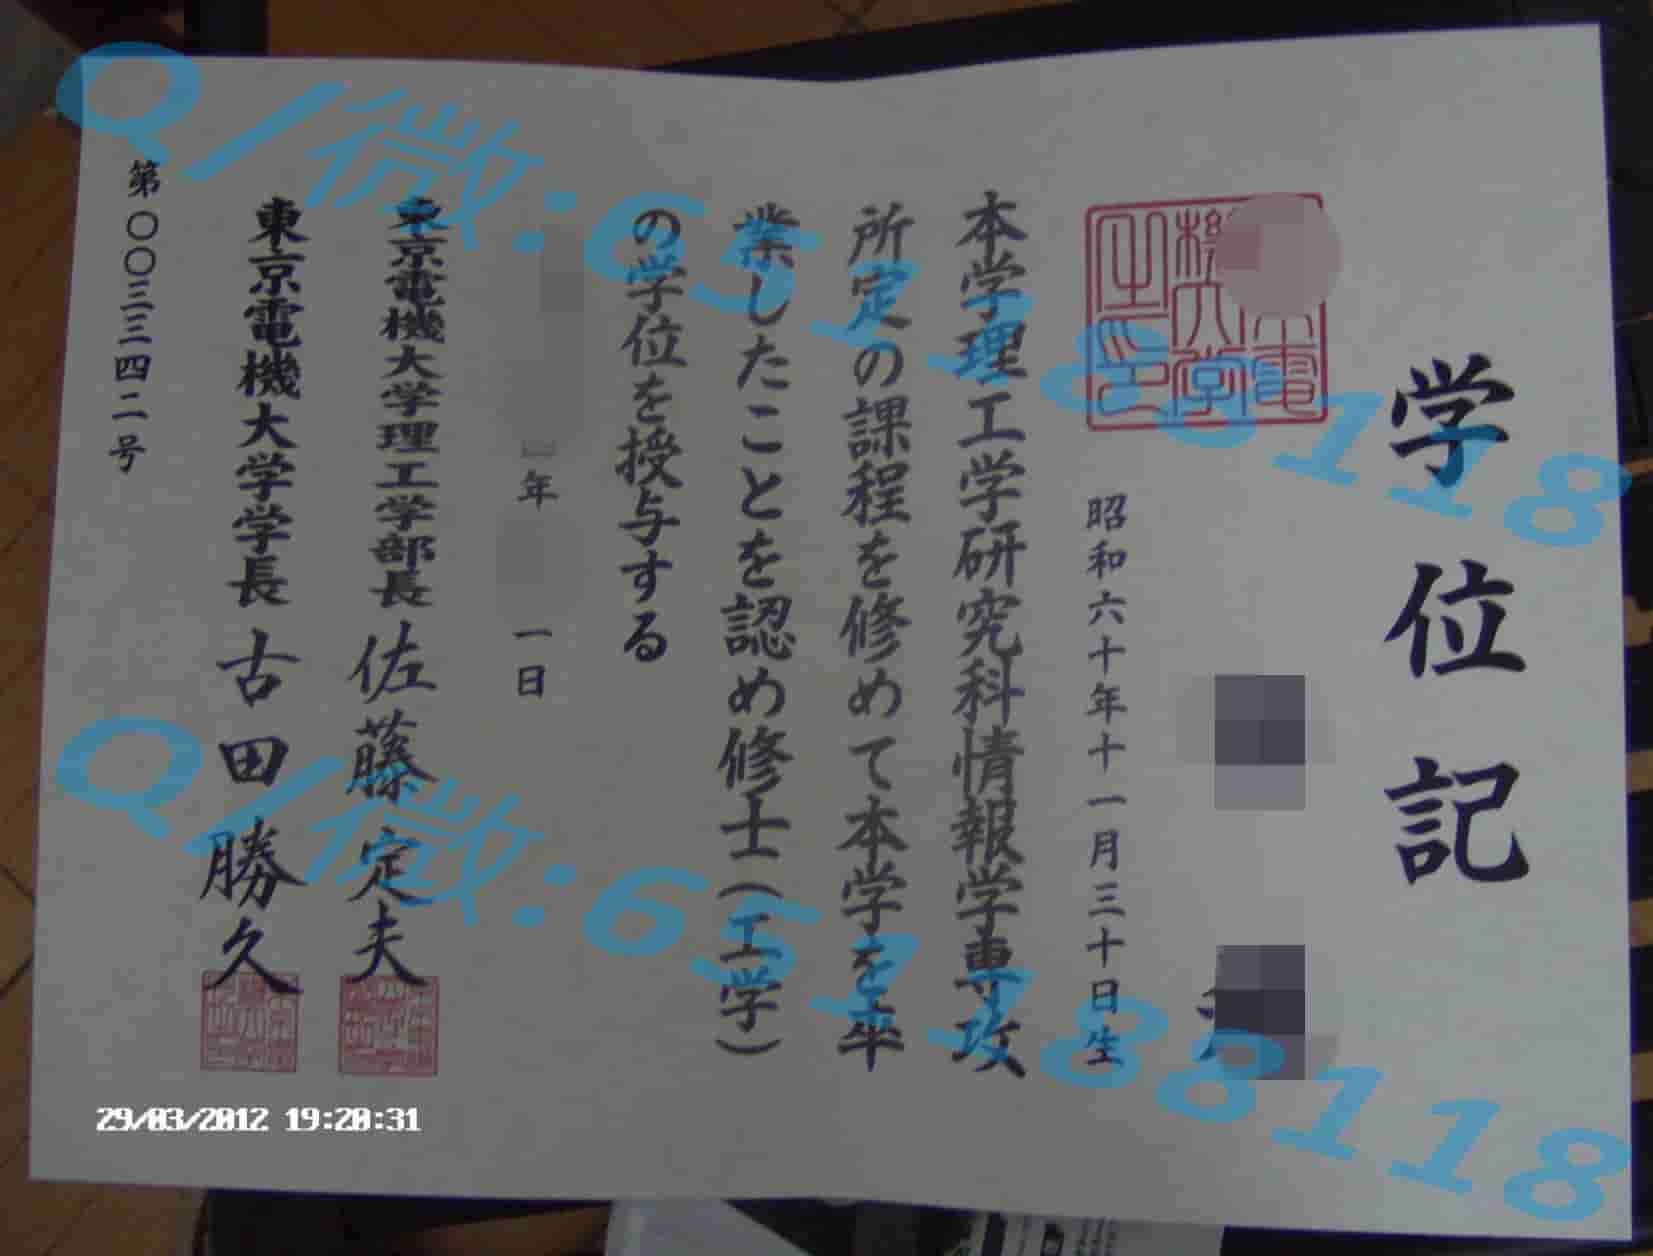 学位記
昭和六十年十一月三十日生
本学理工学研究科情報学専攻
所定の課程を修めて本学を卒
業したことを認め修士(工学)
の学位を授与する
年 一日
東京電機大学理工学部長 佐藤定夫
東京電機大学学長 古田勝久
第〇〇三三四二号
29/03/2012 19:20:31
Q/微:65
Q/微:65